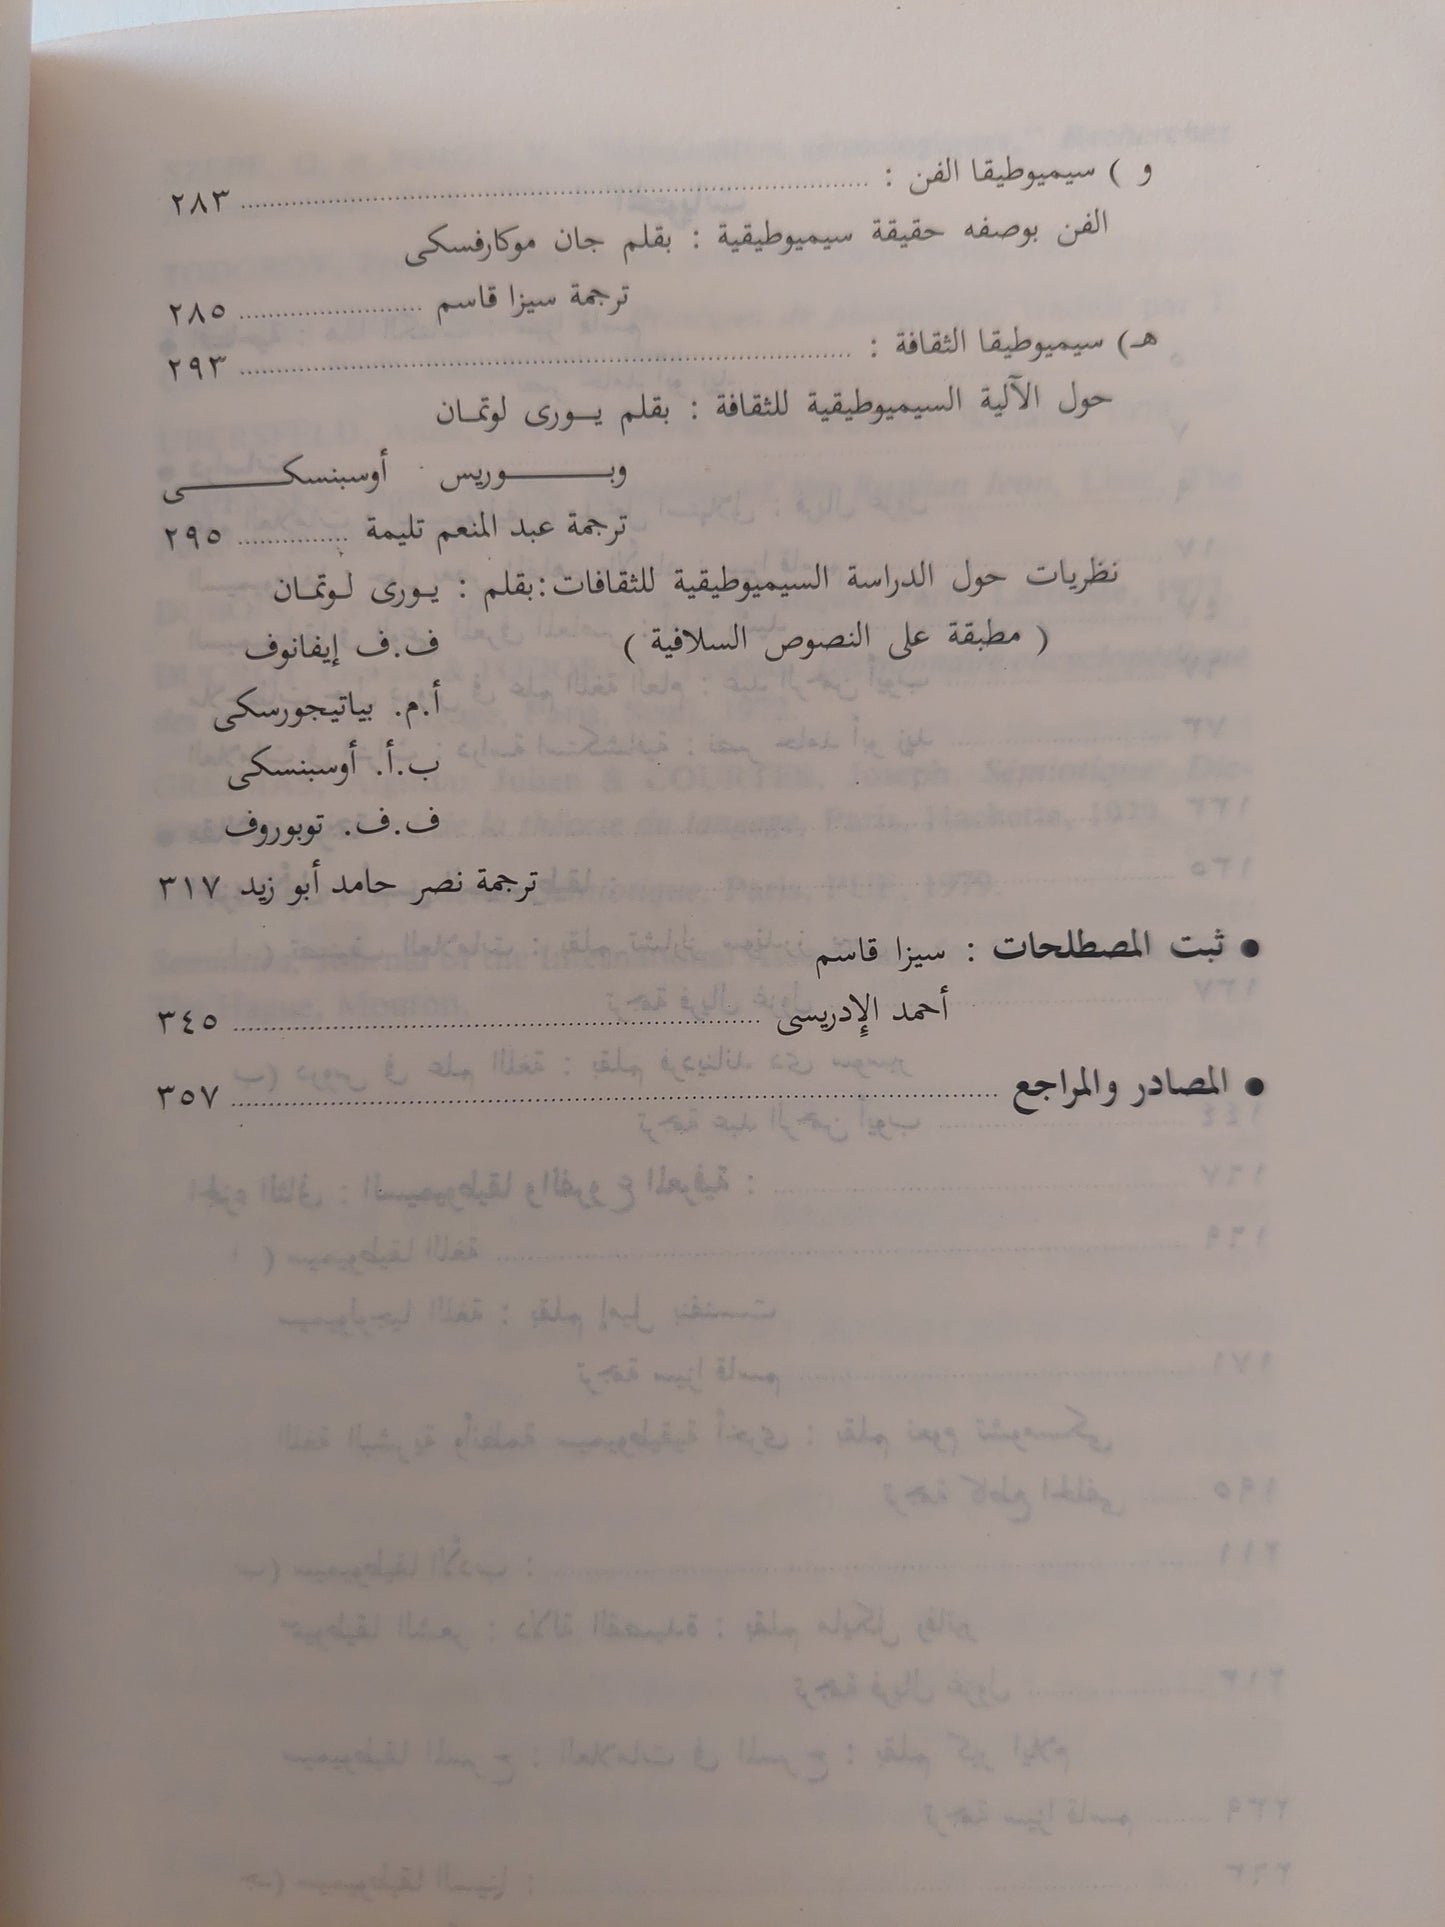 و ) سيميوطيقا الفن : ........................ ٢٨٣
الفن بوصفه حقيقة سيميوطيقية : بقلم جان موكارفسكى
ترجمة سيزا قاسم .................... ٢٨٥
هـ) سيميوطيقا الثقافة : ........................ ٢٩٣
حول الآلية السيميوطيقية للثقافة : بقلم يـورى لوتمـان
وبـــــوريس أوسبنسكـــــى
ترجمة عبد المنعم تليمة ............ ٢٩٥
نظريات حول الدراسة السيميوطيقية للثقافات : بقلم : يـورى لـوتمـان
( مطبقة على النصوص السلافية ) ف.ف إيفانوف
أ.م. بياتيجورسكى
ب.أ. أوسبنسكى
ف.ف. توبوروف
ترجمة نصر حامد أبو زيد ٣١٧
● ثبت المصطلحات : سيزا قاسم
أحمد الإدريسى ........................ ٣٤٥
● المصادر والمراجع ........................ ٣٥٧